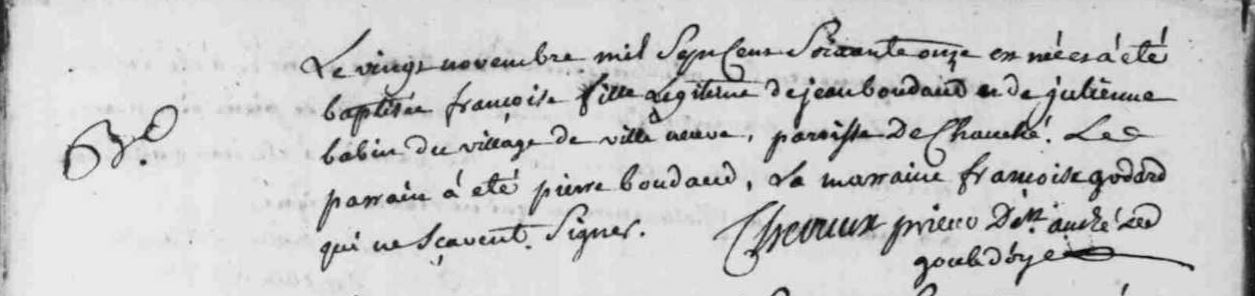 Le vingt novembre mil Sept Cent Soixante onze est née et a été
baptisée françoise fille Legitime de jean boudaud et de julienne
babin du village de ville neuve, paroisse De Chauché. Le
B.
parrain á eté pierre boudaud, La marraine francoise godard
qui ne Sçavent Signer. Chevreux prieur De st andré
goule d'oye